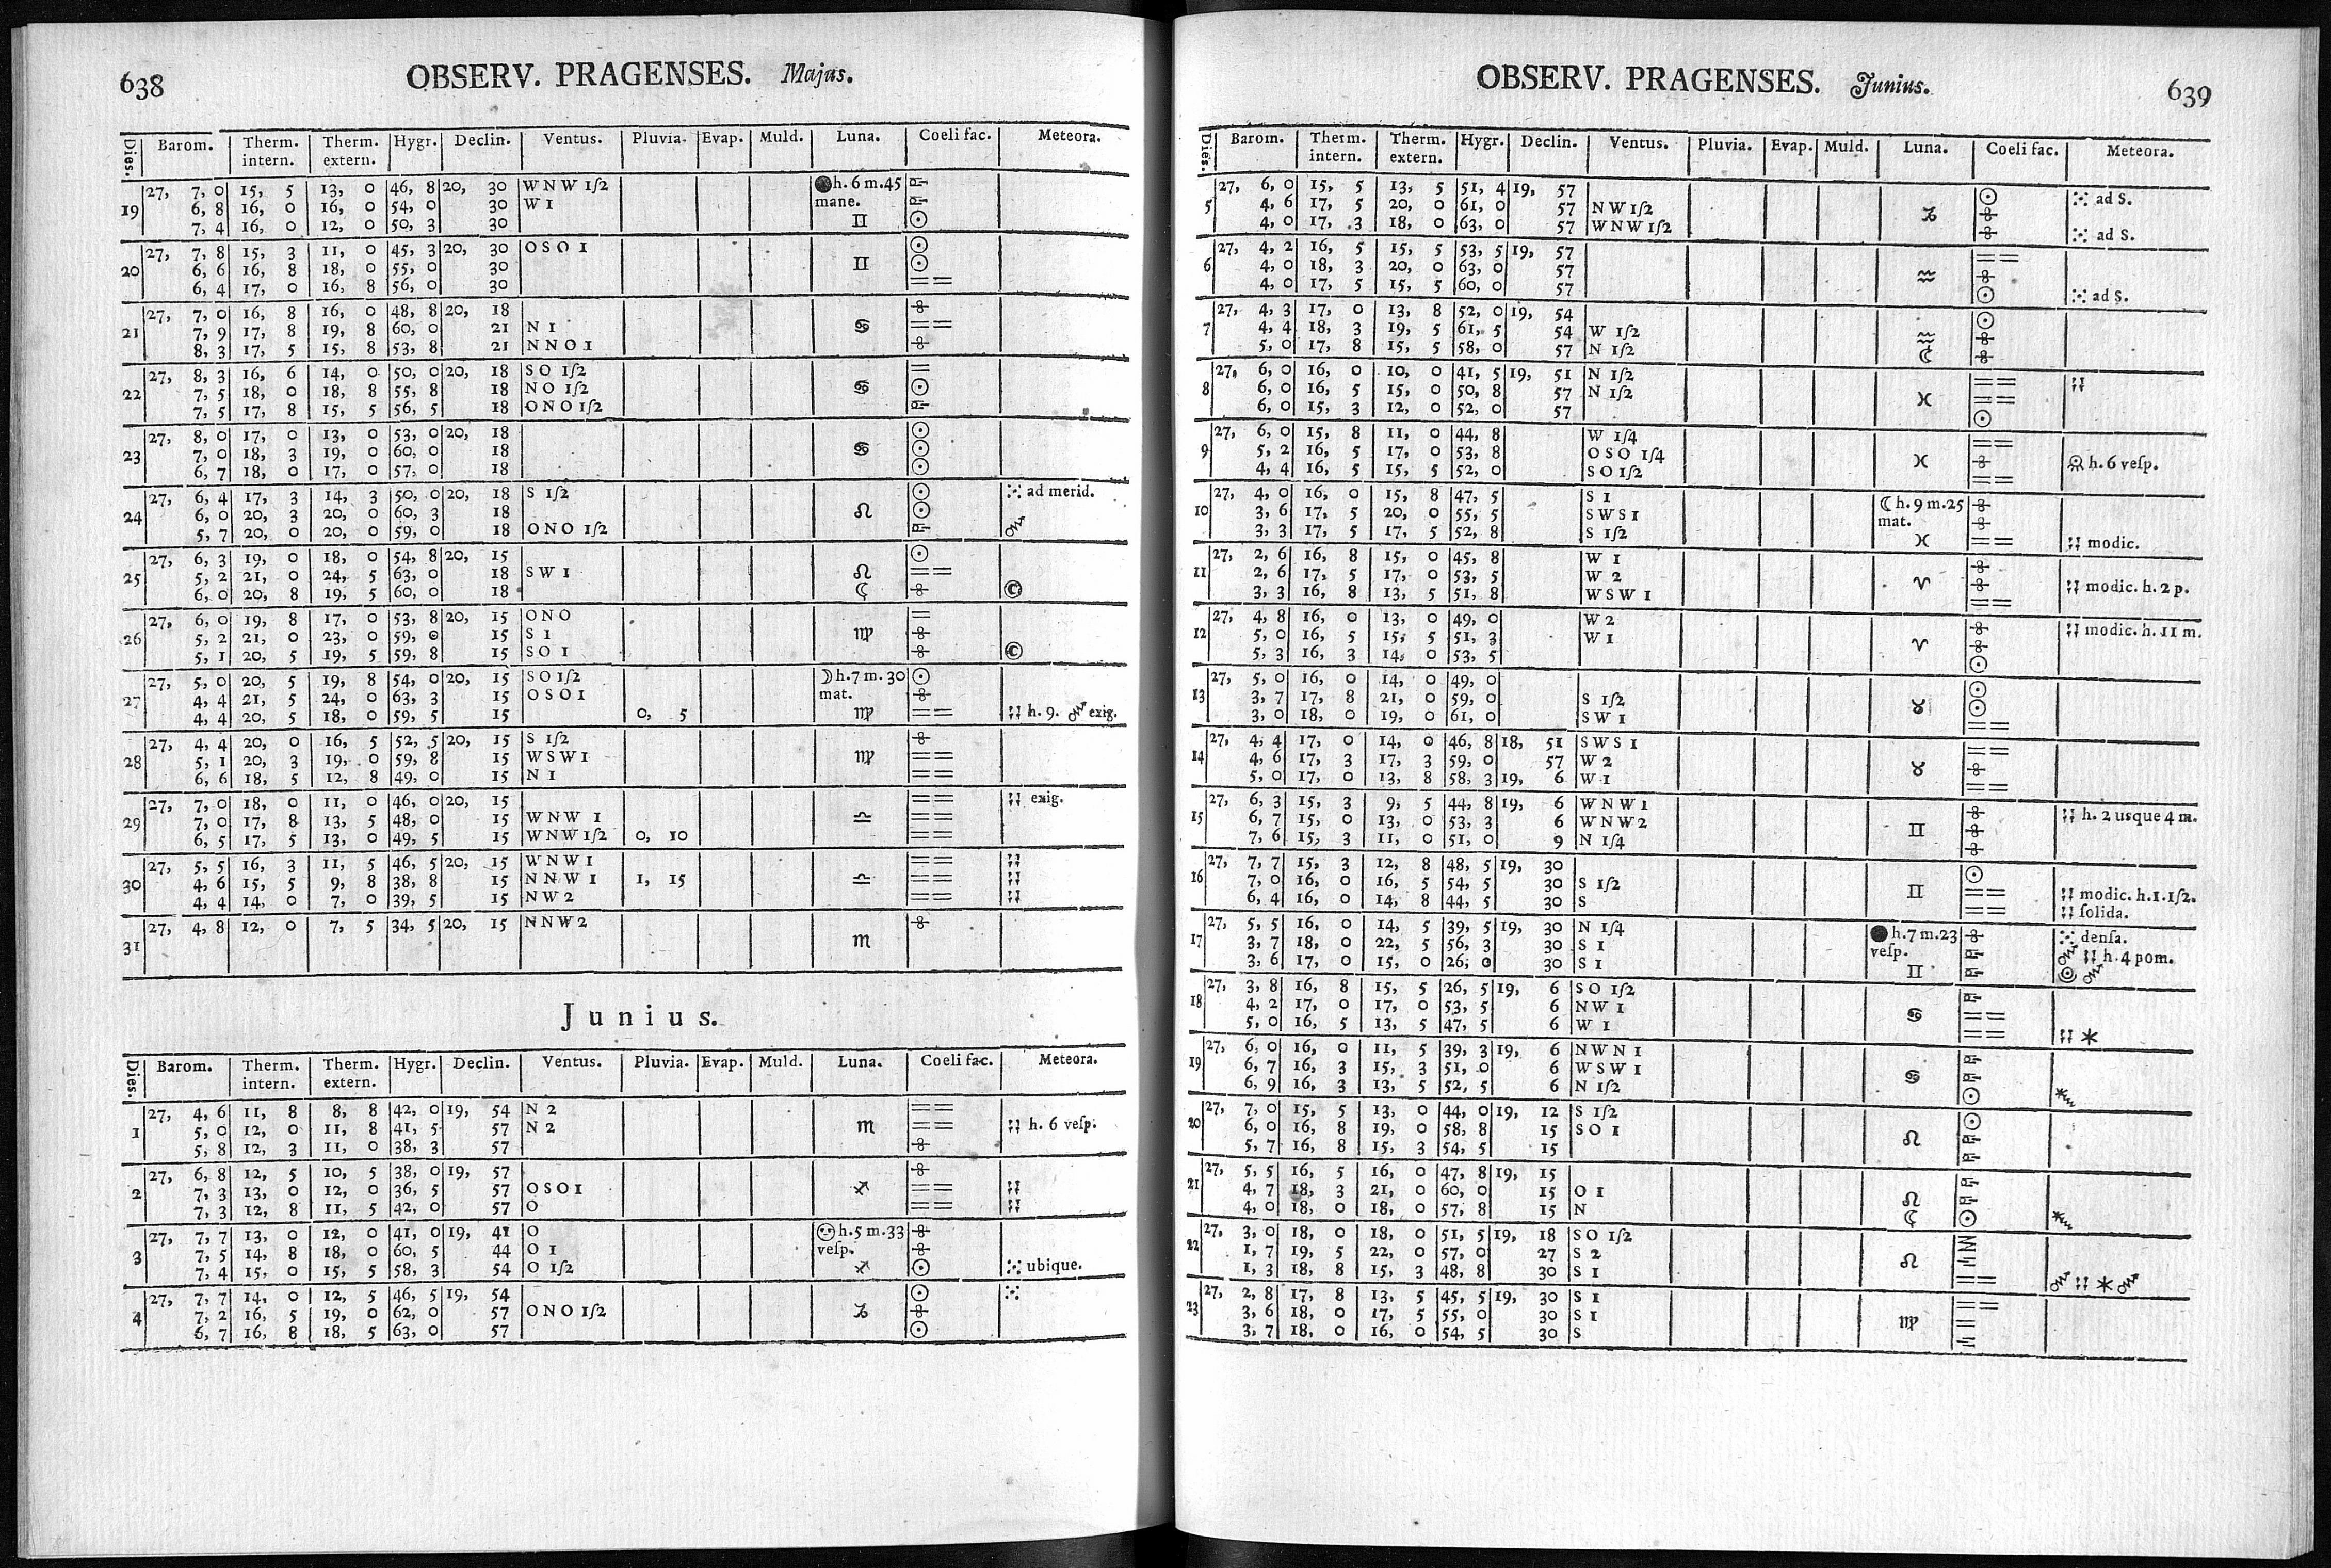 638 OBSERV. PRAGENSES. Majus.
Dies. Barom. Therm. intern. Therm. extern. Hygr. Declin. Ventus. Pluvia. Evap. Muld. Luna. Coeli fac. Meteora.
19 27, 7, 0 15, 5 13, 0 46, 8 20, 30 WNW 1ſ2 h. 6 m. 45
6, 8 16, 0 16, 0 54, 0 30 W 1 mane.
7, 4 16, 0 12, 0 50, 3 30 ♊ ☉
20 27, 7, 8 15, 3 11, 0 45, 3 20, 30 OSO 1 ☉
6, 6 16, 8 18, 0 55, 0 30 ♊ ☉
6, 4 17, 0 16, 8 56, 0 30 ==
21 27, 7, 0 16, 8 16, 0 48, 8 20, 18
7, 9 17, 8 19, 8 60, 0 21 N 1 ♋ ==
8, 3 17, 5 15, 8 53, 8 21 NNO 1
22 27, 8, 3 16, 6 14, 0 50, 0 20, 18 SO 1ſ2 =
7, 5 18, 0 18, 8 55, 8 18 NO 1ſ2 ♋ ☉
7, 5 17, 8 15, 5 56, 5 18 ONO 1ſ2
23 27, 8, 0 17, 0 13, 0 53, 0 20, 18 ☉
7, 0 18, 3 19, 0 60, 0 18 ♋ ☉
6, 7 18, 0 17, 0 57, 0 18 ☉
24 27, 6, 4 17, 3 14, 3 50, 0 20, 18 S 1ſ2 ☉ ad merid.
6, 0 20, 3 20, 0 60, 3 18 ♌ ☉
5, 7 20, 0 20, 0 59, 0 18 ONO 1ſ2
25 27, 6, 3 19, 0 18, 0 54, 8 20, 15 ☉
5, 2 21, 0 24, 5 63, 0 18 SW 1 ♌ ==
6, 0 20, 8 19, 5 60, 0 18 ☾ ©
26 27, 6, 0 19, 8 17, 0 53, 8 20, 15 ONO =
5, 2 21, 0 23, 0 59, 0 15 S 1 ♍
5, 1 20, 5 19, 5 59, 8 15 SO 1 ©
27 27, 5, 0 20, 5 19, 8 54, 0 20, 15 SO 1ſ2 ☽ h. 7 m. 30 ☉
4, 4 21, 5 24, 0 63, 3 15 OSO 1 mat.
4, 4 20, 5 18, 0 59, 5 15 0, 5 ♍ == h. 9. exig.
28 27, 4, 4 20, 0 16, 5 52, 5 20, 15 S 1ſ2
5, 1 20, 3 19, 0 59, 8 15 WSW 1 ♍ ==
6, 6 18, 5 12, 8 49, 0 15 N 1 ==
29 27, 7, 0 18, 0 11, 0 46, 0 20, 15 == exig.
7, 0 17, 8 13, 5 48, 0 15 WNW 1 ♎ ==
6, 5 17, 5 13, 0 49, 5 15 WNW 1ſ2 0, 10 ==
30 27, 5, 5 16, 3 11, 5 46, 5 20, 15 WNW 1 ==
4, 6 15, 5 9, 8 38, 8 15 NNW 1 1, 15 ♎ ==
4, 4 14, 0 7, 0 39, 5 15 NW 2 ==
31 27, 4, 8 12, 0 7, 5 34, 5 20, 15 NNW 2 ♏
Junius.
Dies. Barom. Therm. intern. Therm. extern. Hygr. Declin. Ventus. Pluvia. Evap. Muld. Luna. Coeli fac. Meteora.
1 27, 4, 6 11, 8 8, 8 42, 0 19, 54 N 2 ==
5, 0 12, 0 11, 8 41, 5 57 N 2 ♏ == h. 6 veſp.
5, 8 12, 3 11, 0 38, 3 57
2 27, 6, 8 12, 5 10, 5 38, 0 19, 57
7, 3 13, 0 12, 0 36, 5 57 OSO 1 ♐ ==
7, 3 12, 8 11, 5 42, 0 57 O ==
3 27, 7, 7 13, 0 12, 0 41, 0 19, 41 O h. 5 m. 33
7, 5 14, 8 18, 0 60, 5 44 O 1 veſp.
7, 4 15, 0 15, 5 58, 3 54 O 1ſ2 ♐ ☉ ubique.
4 27, 7, 7 14, 0 12, 5 46, 5 19, 54 ☉
7, 2 16, 5 19, 0 62, 0 57 ONO 1ſ2 ♑
6, 7 16, 8 18, 5 63, 0 57 ☉
OBSERV. PRAGENSES. Junius. 639
Dies. Barom. Therm. intern. Therm. extern. Hygr. Declin. Ventus. Pluvia. Evap. Muld. Luna. Coeli fac. Meteora.
5 27, 6, 0 15, 5 13, 5 51, 4 19, 57 ☉ ad S.
4, 6 17, 5 20, 0 61, 0 57 NW 1ſ2 ♑
4, 0 17, 3 18, 0 63, 0 57 WNW 1ſ2 ad S.
6 27, 4, 2 16, 5 15, 5 53, 5 19, 57 ==
4, 0 18, 3 20, 0 63, 0 57 ♒
4, 0 17, 5 15, 5 60, 0 57 ☉ ad S.
7 27, 4, 3 17, 0 13, 8 52, 0 19, 54 ☉
4, 4 18, 3 19, 5 61, 5 54 W 1ſ2 ♒
5, 0 17, 8 15, 5 58, 0 57 N 1ſ2 ☾
8 27, 6, 0 16, 0 10, 0 41, 5 19, 51 N 1ſ2 ==
6, 0 16, 5 15, 0 50, 8 57 N 1ſ2 ♓ ==
6, 0 15, 3 12, 0 52, 0 57 ☉
9 27, 6, 0 15, 8 11, 0 44, 8 W 1ſ4 ==
5, 2 16, 5 17, 0 53, 8 OSO 1ſ4 ♓ h. 6 veſp.
4, 4 16, 5 15, 5 52, 0 SO 1ſ2 ==
10 27, 4, 0 16, 0 15, 8 47, 5 S 1 ☾ h. 9 m. 25
3, 6 17, 5 20, 0 55, 5 SWS 1 mat.
3, 3 17, 5 17, 5 52, 8 S 1ſ2 ♓ == modic.
11 27, 2, 6 16, 8 15, 0 45, 8 W 1
2, 6 17, 5 17, 0 53, 5 W 2 ♈ modic. h. 2 p.
3, 3 16, 8 13, 5 51, 8 WSW 1 ==
12 27, 4, 8 16, 0 13, 0 49, 0 W 2 modic. h. 11 m.
5, 0 16, 5 15, 5 51, 3 W 1 ♈
5, 3 16, 3 14, 0 53, 5 ☉
13 27, 5, 0 16, 0 14, 0 49, 0 ☉
3, 7 17, 8 21, 0 59, 0 S 1ſ2 ♉ ☉
3, 0 18, 0 19, 0 61, 0 SW 1 ==
14 27, 4, 4 17, 0 14, 0 46, 8 18, 51 SWS 1 ==
4, 6 17, 3 17, 3 59, 0 57 W 2 ♉
5, 0 17, 0 13, 8 58, 3 19, 6 W 1 ==
15 27, 6, 3 15, 3 9, 5 44, 8 19, 6 WNW 1 h. 2 usque 4 m.
6, 7 15, 0 13, 0 53, 3 6 WNW 2 ♊
7, 6 15, 3 11, 0 51, 0 9 N 1ſ4
16 27, 7, 7 15, 3 12, 8 48, 5 19, 30 ☉
7, 0 16, 0 16, 5 54, 5 30 S 1ſ2 ♊ == modic. h. 1. 1ſ2.
6, 4 16, 0 14, 8 44, 5 30 S == ſolida.
17 27, 5, 5 16, 0 14, 5 39, 5 19, 30 N 1ſ4 h. 7 m. 23 denſa.
3, 7 18, 0 22, 5 56, 3 30 S 1 veſp. h. 4 pom.
3, 6 17, 0 15, 0 26, 0 30 S 1 ♊
18 27, 3, 8 16, 8 15, 5 26, 5 19, 6 SO 1ſ2
4, 2 17, 0 17, 0 53, 5 6 NW 1 ♋ ==
5, 0 16, 5 13, 5 47, 5 6 W 1 ==
19 27, 6, 0 16, 0 11, 5 39, 3 19, 6 NWN 1
6, 7 16, 3 15, 3 51, 0 6 WSW 1 ♋
6, 9 16, 3 13, 5 52, 5 6 N 1ſ2 ☉
20 27, 7, 0 15, 5 13, 0 44, 0 19, 12 S 1ſ2 ☉
6, 0 16, 8 19, 0 58, 8 15 SO 1 ♌
5, 7 16, 8 15, 3 54, 5 15
21 27, 5, 5 16, 5 16, 0 47, 8 19, 15
4, 7 18, 3 21, 0 60, 0 15 O 1 ♌
4, 0 18, 0 18, 0 57, 8 15 N ☾ ☉
22 27, 3, 0 18, 0 18, 0 51, 5 19, 18 SO 1ſ2
1, 7 19, 5 22, 0 57, 0 27 S 2 ♌
1, 3 18, 8 15, 3 48, 8 30 S 1 ==
23 27, 2, 8 17, 8 13, 5 45, 5 19, 30 S 1 ==
3, 6 18, 0 17, 5 55, 0 30 S 1 ♍ =
3, 7 18, 0 16, 0 54, 5 30 S